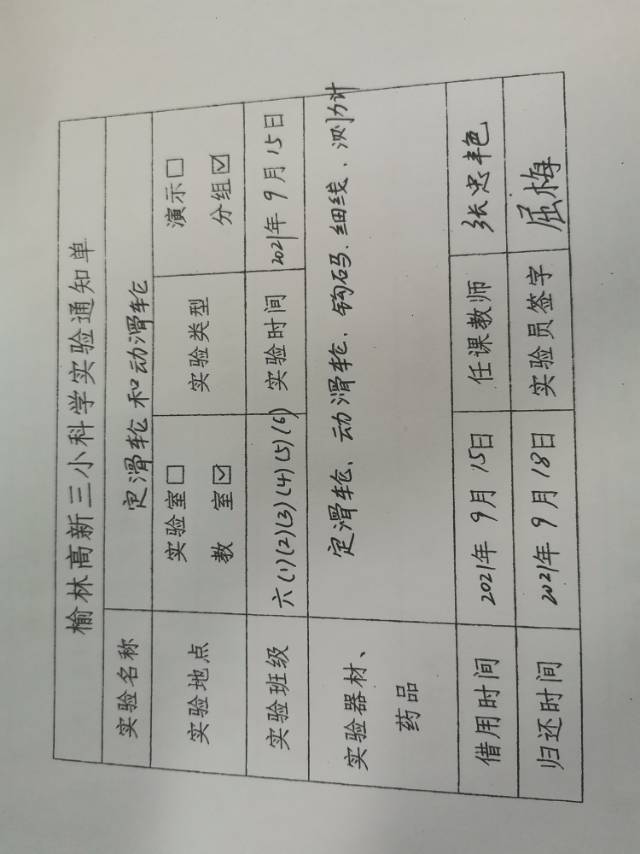 榆林高新三小科学实验通知单
实验名称 定滑轮和动滑轮
实验地点 实验室☐ 实验类型 演示☐
教 室☑ 分组☑
实验班级 六(1)(2)(3)(4)(5)(6) 实验时间 2021年9月15日
实验器材、 定滑轮、动滑轮、钩码、细线、测力计
药品
借用时间 2021年9月15日 任课教师 张忠艳
归还时间 2021年9月18日 实验员签字 屈梅